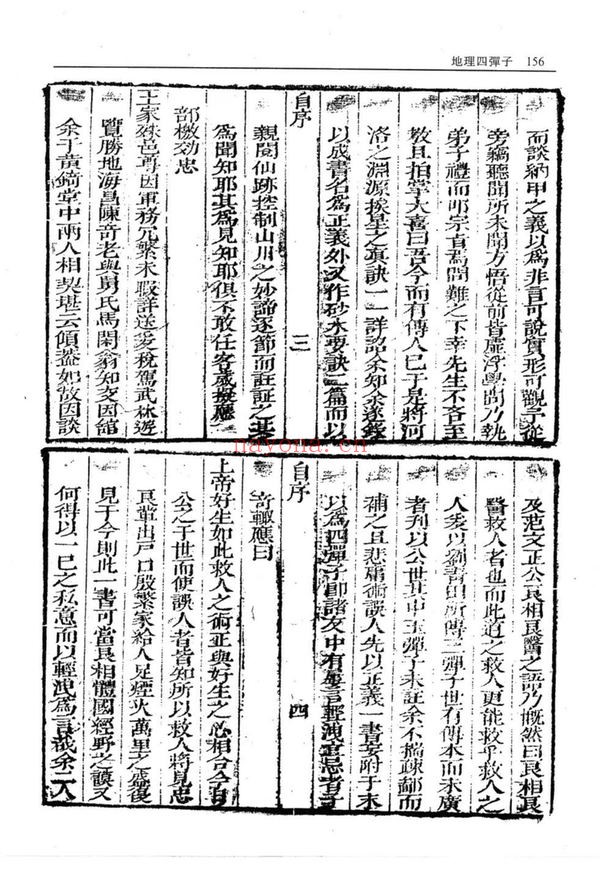 地理四彈子 156
而談納甲之義以為非言可說實形可觀予從
旁竊聽聞所未聞方悟從前皆虛浮學問乃執
弟子禮而耶宗肯焉問難之下幸先生不吝至
敎且拍掌大喜曰吾今而有傳人巳于是將河
洛之淵源挨星之真訣一一詳認余知余遂錄
以成書名為正義外又作砂水要訣二篇而以
自序 三
親閱仙跡控制山川之妙諦逐節而註証之其
為聞知耶其為見知耶俱不敢任客歲擬應
部檄効忠
王家殊邑尋因軍務冗繁未暇詳送多稅駕武林遊
覽勝地海昌陳奇老與舅氏馬閑翁知交因館
余于黃錡堂中兩人相契堪云傾蓋如故因談
及范文正公良相良醫之語乃慨然曰良相良
醫救人者也而此道之救人更能救乎救人之
人爰以劉青田所傳三彈子世有傳本而未廣
者刋以公世其中玉彈子未註余不揣疎鄙而
補之且悲庸術誤人先以正義一書妄附于末
以為四彈子卽諸友中有每言輕洩宜忌者予
自序 四
竒輙應曰
上帝好生如此救人之術正與好生之心相合今旣
公之于世而使誤人者皆知所以救人將見忠
良輩出戸口殷繁家給人足煙火萬里之盛復
見于今則此一書可當良相體國經野之謨又
何得以一巳之私意而以輕洩為言哉余二人
nayona.cn